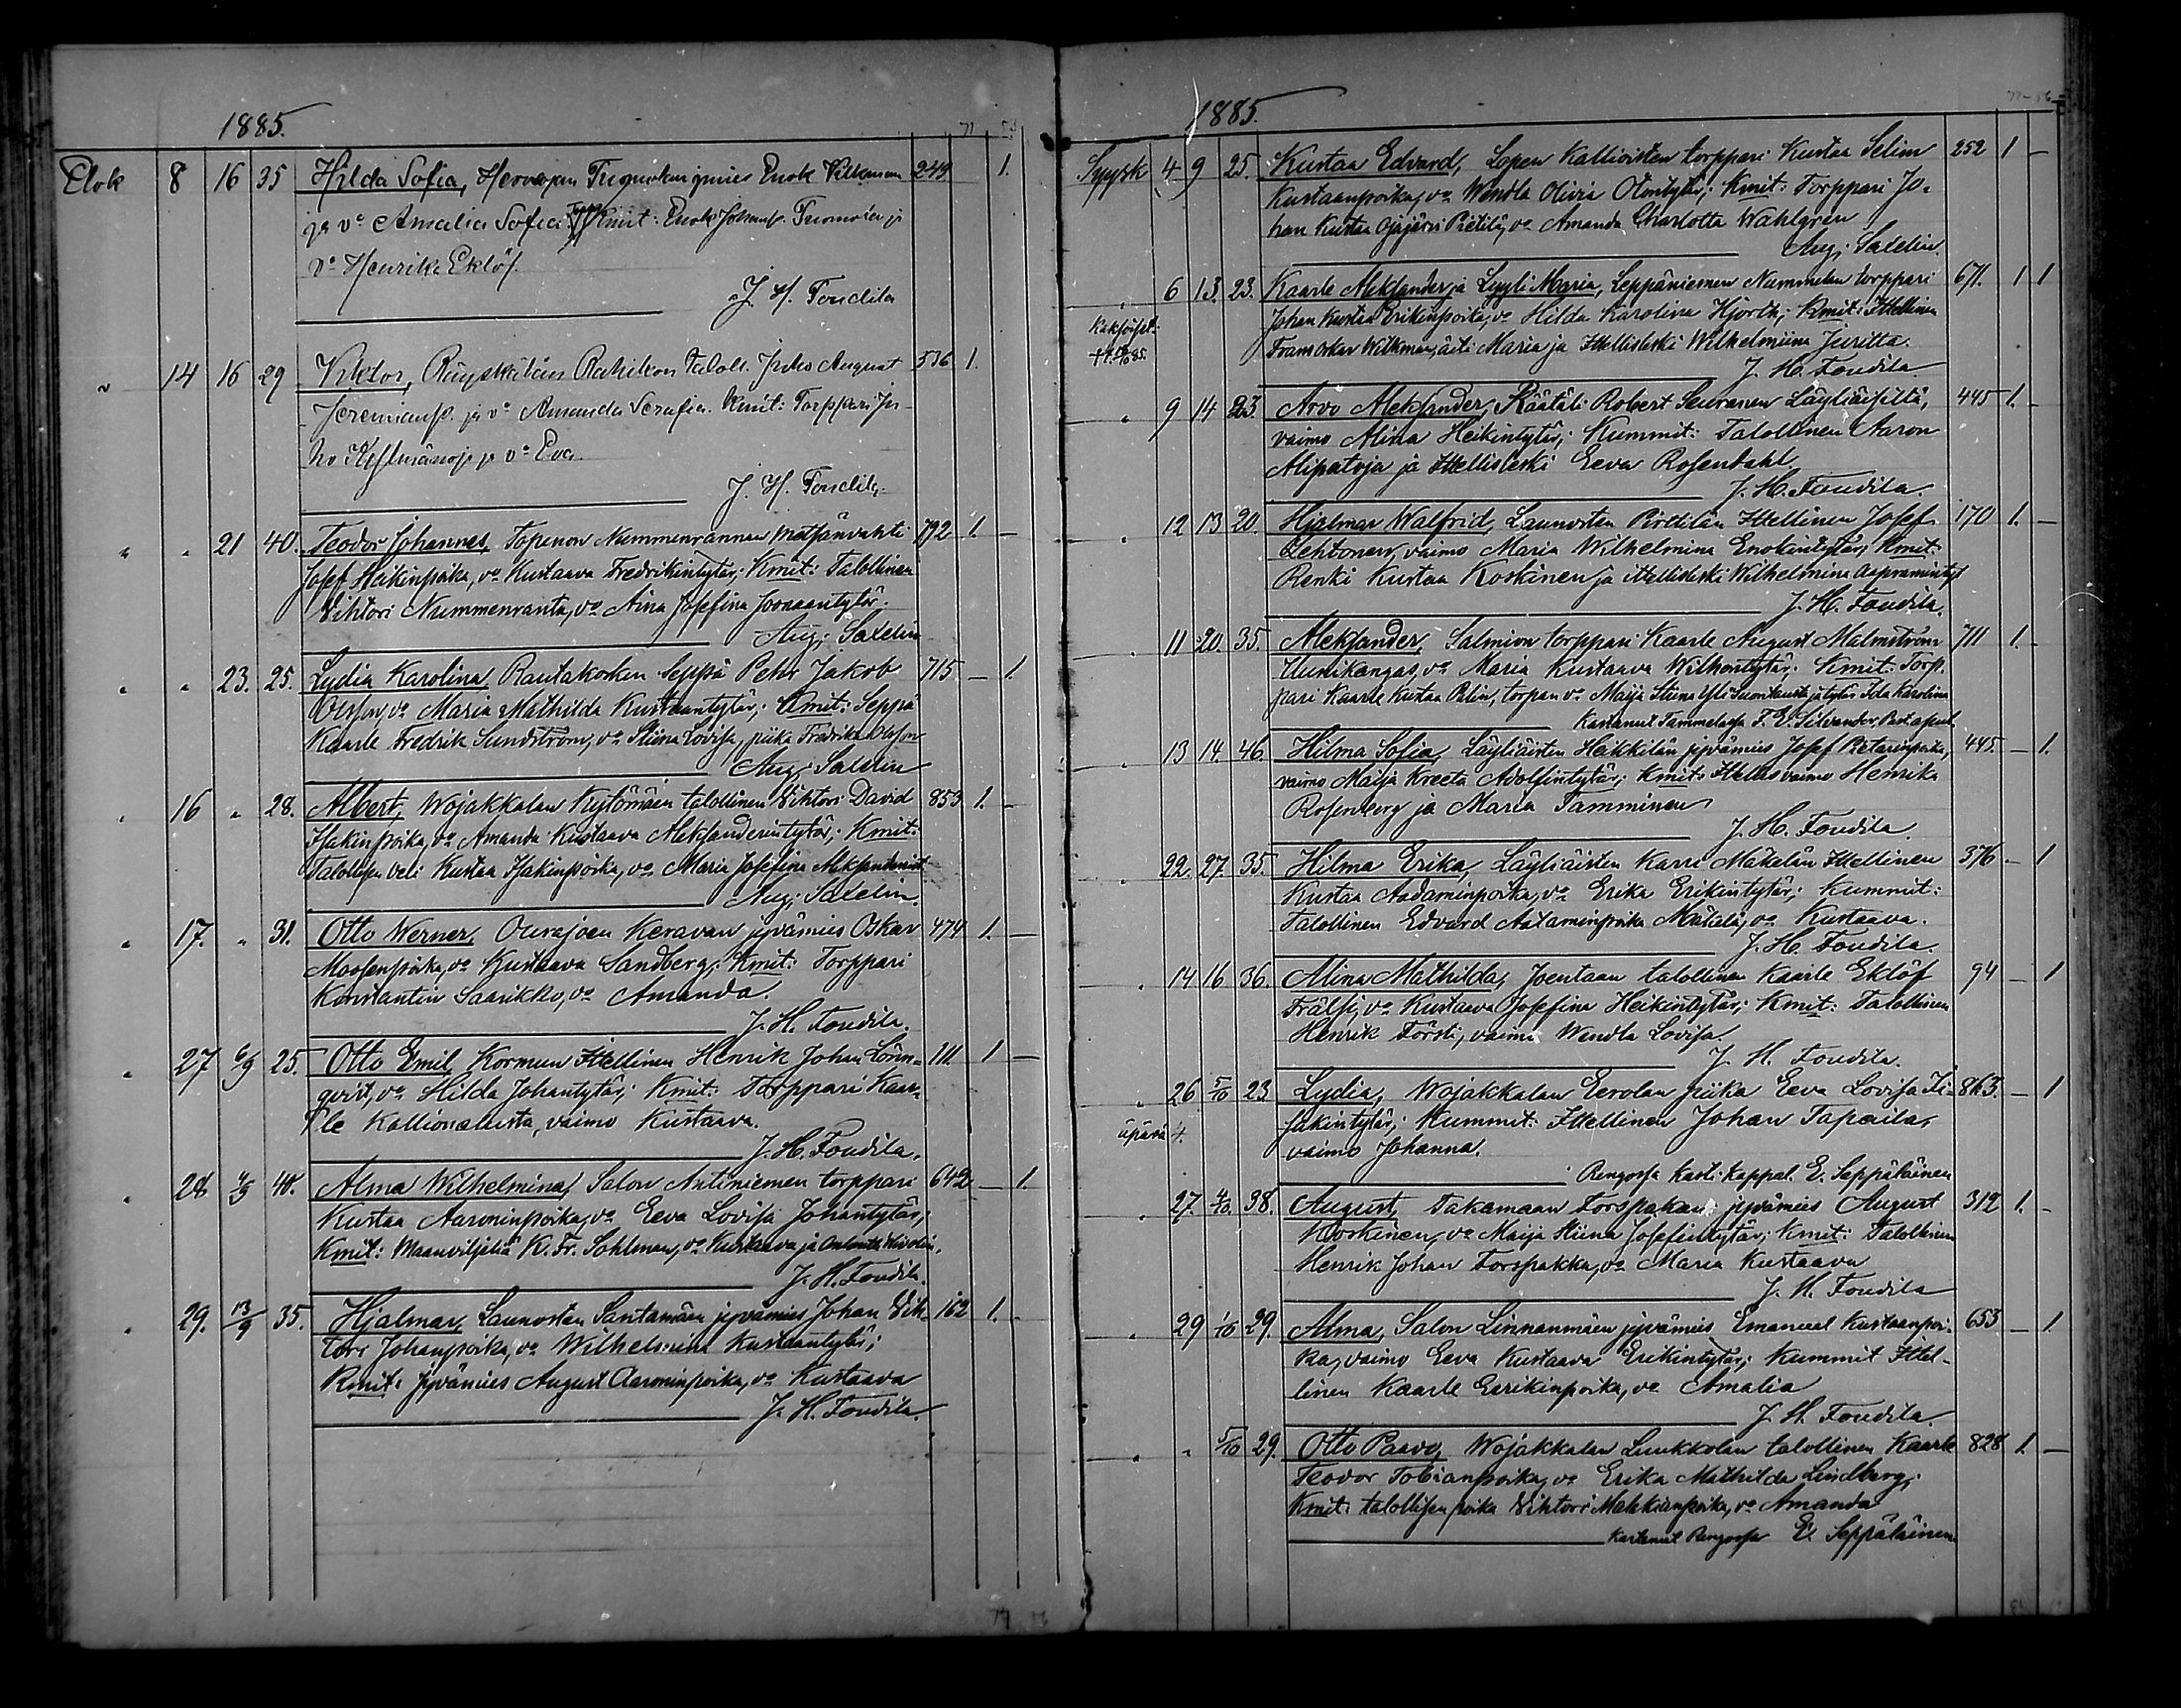 1885.
Elok 8 16 35 Hilda Sofia, Enok 249 1.
ja vo Amalia Sofia. Kmit: Enok
vo Henrika Eklöf.
J. H. Fondila
" 14 16 29 Viktor, August 536 1.
ja vo Amanda Serafia. Kmit: Torppari
ja vo Eva.
J. H. Fondila
" " 21 40. Teodor Johannes, Topenon Nummenrannan 792 1. —
Josef Heikinpoika, vo Kustaava Fredrikintytär; Kmit: Talollinen
Vihtori Nummenranta, vo Aina Josefina Joonaantytär.
Aug; Saxelin
" " 23. 25. Lydia Karolina, Rautakosken Seppä Pehr Jakob 715 — 1.
Olsson, vo Maria Mathilda Kustaantytär; Kmit: Seppä
Kaarle Fredrik Sundström, vo Stiina Lovisa, piika Fredrika Olsson
Aug; Saxelin
" 16 " 28. Albert, Wojakkalan Kytömäen talollinen Vihtori David 853 1. —
Isakinpoika, vo Amanda Kustaava Aleksanderintytär; Kmit:
Talollisen veli Kustaa Isakinpoika, vo Maria Josefina
Aug; Saxelin.
" 17. " 31. Otto Werner, Ourajoen Keravan jyvämies Oskar 474 1. —
Moosenpoika, vo Kustaava Sandberg; Kmit: Torppari
Konstantin Saarikko, vo Amanda.
J. H. Fondila.
" 27 6/9 25. Otto Emil, Kormun Ittellinen Henrik Johan Lönn- 111. 1 —
qvist, vo Hilda Johantytär; Kmit: Torppari Kaar-
le Kallionalusta, vaimo Kustaava.
J. H. Fondila.
" 28 40. Alma Wilhelmina, Salon Antiniemen torppari 642 — 1.
Kustaa Aaroninpoika, vo Eeva Lovisa Johantytär;
Kmit: Maanviljeliä K. Fr. Sohlman, vo Kustaava ja
J. H. Fondila.
" 29. 13/9 35. Hjalmar, Launosten Santamäen jyvämies Johan Vih- 162 1. —
tori Johanpoika, vo Wilhelmina Kustaantytär;
Kmit: jyvämies August Aaroninpoika, vo Kustaava
J. H. Fondila.
1885.
Syysk 4 9 25. Kustaa Edvard, Lopen Kallioisten torppari Kustaa Selim 252 1 —
Kustaanpoika, vo Wendla Olivia Otontytär; Kmit: Torppari Jo-
han Kustaa Ojajärvi Pietilä, vo Amanda Charlotta Wahlgren
Aug; Saxelin.
" 6 13. 23. Kaarle Aleksander ja Lyyli Maria, Leppäniemen Nummelan torppari 671. 1 1
Kaksoiset:
Johan Kustaa Erikinpoika, vo Hilda Karolina Hjorth; Kmit: Ittellinen
Frans Oskar Wilkman, äiti Maria ja Ittellisleski Wilhelmiina Juritta.
J. H. Fondila
" 9 14 23. Arvo Aleksander, Räätäli Robert Seuranen Läyliäisiltä, 445 1. —
vaimo Alina Heikintytär; Kummit: Talollinen Aaron
Alipatoja ja Ittellisleski Eeva Rosendahl.
J. H. Fondila.
" 12 13 20. Hjalmar Walfrid, Launosten Pirttilän Ittellinen Josef 170 1. —
Lehtonen, vaimo Maria Wilhelmina Enokintytär; Kmit:
Renki Kustaa Koskinen ja ittellisleski Wilhelmina
J. H. Fondila.
" 11 20. 35. Aleksander, Salmion torppari Kaarle August Malmström 711 1. —
Uusikangas, vo Maria Kustaava Wilhontytär; Kmit: Torp-
pari Kaarle Kustaa Palin, torpan vo Maija Stiina ja tytär Ida Karolina
Kastanut Tammelassa F. E. Silvander Past. apul.
" 13 14. 46. Hilma Sofia, Läyliäisten Heikkilän jyvämies Josef Pietarinpoika, 445. — 1.
vaimo Maija Kreeta Adolfintytär; Kmit: Ittellisvaimo Henrika
Rosenberg ja Maria Tamminen
J. H. Fondila.
" 22. 27. 35. Hilma Erika, Läyliäisten Karra Mäkelän Ittellinen 376 — 1
Kustaa Aadaminpoika, vo Erika Erikintytär; Kummit:
Talollinen Edvard Aataminpoika Mäkelä, vo Kustaava.
J. H. Fondila.
" 14 16 36. Alina Mathilda, Joentaan talollinen Kaarle Eklöf 94 — 1
Frälsi, vo Kustaava Josefina Heikintytär; Kmit: Talollinen
Henrik Försti, vaimo Wendla Lovisa.
J. H. Fondila.
" 26 5/10 23 Lydia, Wojakkalan Eerolan piika Eeva Lovisa Ii- 863. — 1
äpärä 4.
sakintytär; Kummit: Ittellinen Johan Tapaila,
vaimo Johanna.
Rengossa kasti: kappal. E. Seppäläinen
" 27. 4/10. 38. August, Takamaan Forspakan jyvämies August 312 1. —
Koskinen, vo Maija Stiina Josefintytär; Kmit: Talollinen
Henrik Johan Forspakka, vo Maria Kustaava
J. H. Fondila
" 29 1/10 29. Alma, Salon Linnanmäen jyvämies Emanuel Kustaanpoi- 653 — 1.
ka, vaimo Eeva Kustaava Erikintytär; Kummit Ittel-
linen Kaarle Eerikinpoika, vo Amalia
J. H. Fondila.
" " 5/10 29. Otto Paavo, Wojakkalan Luukkolan talollinen Kaarle 828 1. —
Teodor Tobianpoika, vo Erika Mathilda Lindberg;
Kmit: talollisen poika Vihtori Malakianpoika, vo Amanda
Kastanut Rengossa E. Seppäläinen